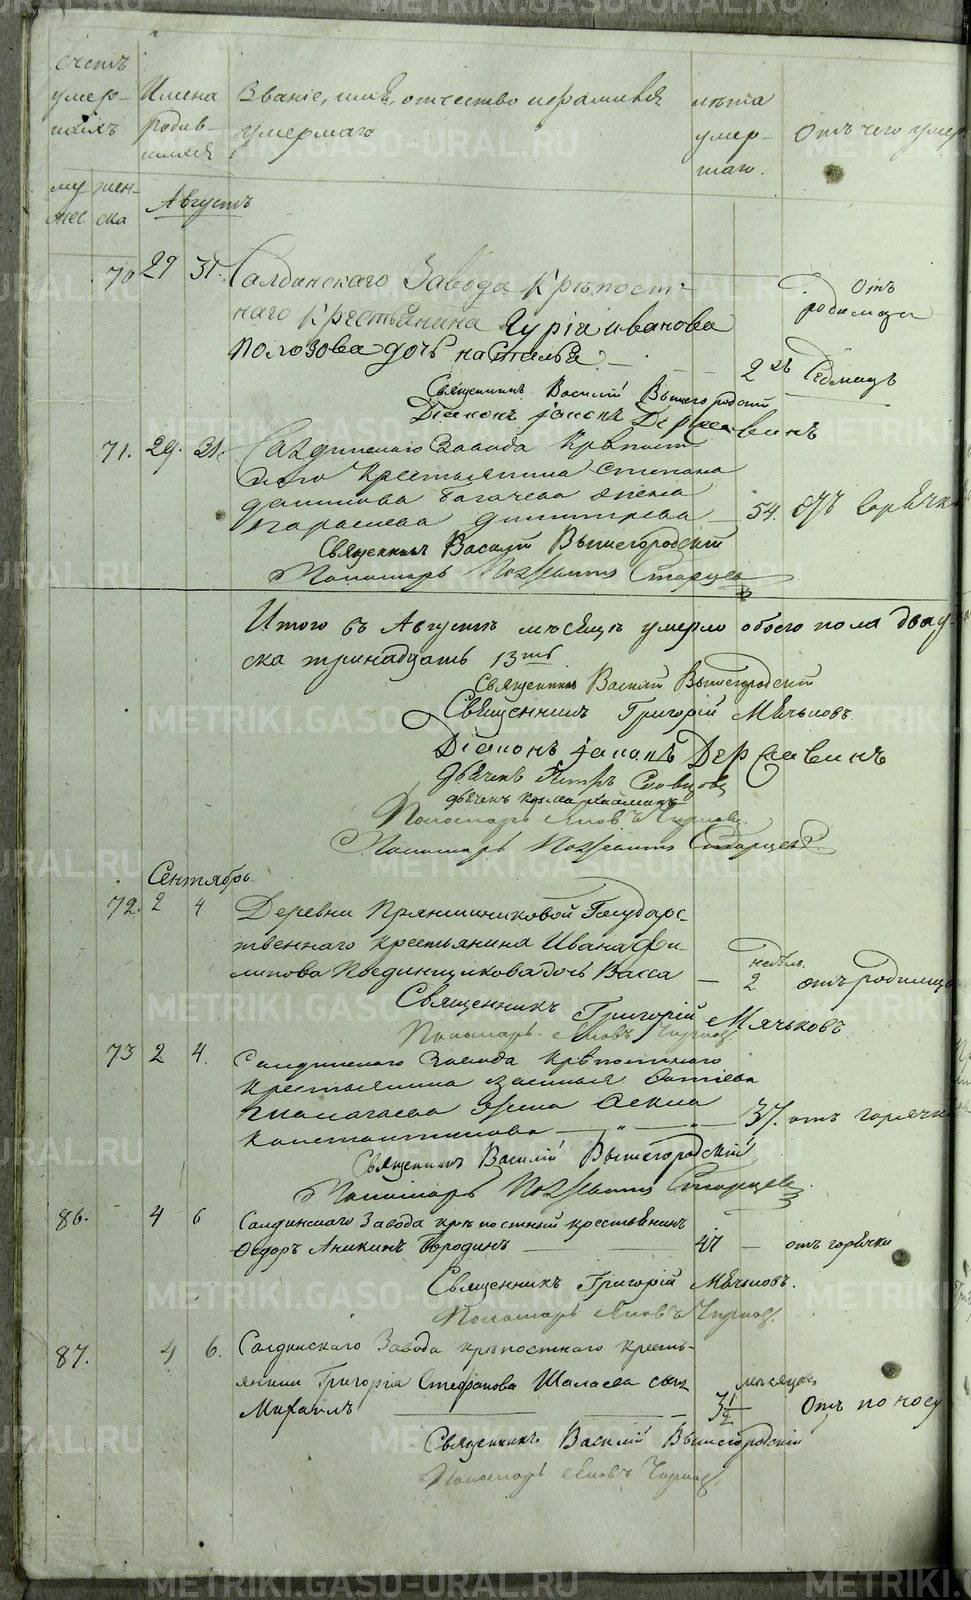 METRIKI.GASO-URAL.RU
Счетъ умер-шихъ
Имена родив-шихся
Званіе, имя, отчество и фамилія умершаго
лѣта умер-шаго.
Отъ чего умер
му жес. жен-ска
Августъ
70 29 31. Салдинскаго Завода Крѣпост-
наго Крестьянина Гурія иванова
Полозова дочь наталья. —
2 хъ Седмицъ
Отъ родимца
Священникъ Василій Вышегородскій
Діаконъ Іаковъ Державинъ
71. 29. 31. Салдинскаго Завода Крѣпост
наго Крестьянина Степана
данилова Богачева жена
Параскева димитріева — 54. отъ Горячки
Священникъ Василій Вышегородскій
Пономарь Старцевъ
Итого въ Августѣ мѣсяцѣ умерло обоего пола двад-
ска тринадцать 13ть
Священникъ Василій Вышегородскій
Священникъ Григорій Мячьковъ.
Діаконъ Іаковъ Державинъ
дьячекъ Петръ Словцовъ
дьячекъ Козма
Пономарь Яковъ
Пономарь Старцевъ
Сентябрь.
72. 2 4 Деревни Пряншиниковой Государс
твеннаго крестьянина Ивана Фи
липова Поединщикова дочь Васса — недѣл. 2 отъ родимца
Священникъ Григорій Мячьковъ
Пономарь Яковъ
73 2 4. Салдинскаго Завода Крѣпостнаго
крестьянина Василья Фотіева
жена Фекла
Константинова — " — " — 37. отъ горячки
Священникъ Василій Вышегородскій
Пономарь Старцевъ
86. 4 6 Салдинскаго Завода крѣпостный крестьянинъ
Ѳедоръ Аникинъ Бородинъ — 47 — отъ горячки
Священникъ Григорій Мячьковъ.
Пономарь Яковъ
87. 4 6. Салдинскаго Завода крѣпостнаго кресть-
янина Григорія Стефанова Шалаева сынъ
Михаилъ — мѣсяцевъ 3 1/2 Отъ поносу
Священникъ Василій Вышегородскій
Пономарь Яковъ